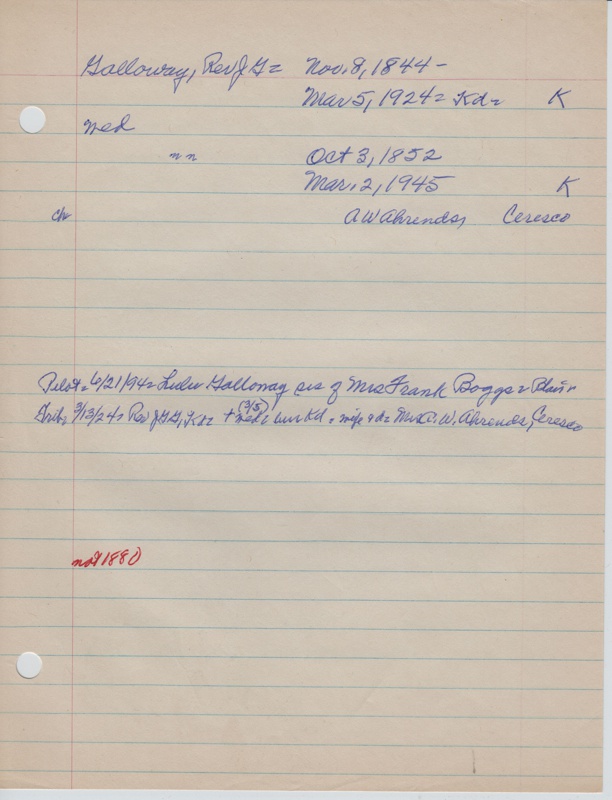 Galloway, Rev J G = Nov. 8, 1844 -
Mar 5, 1924 = Kd = K
Wed
" " Oct 3, 1852
Mar. 2, 1945 K
ch A W Ahrends, Ceresco
Pilot = 6/21/94 = Lulu Galloway sis of Mrs Frank Boggs = Blair
Trib = 3/13/24 = Rev J G G, Kd = + (3/5) bur Kd = wife & d = Mrs A. W. Ahrends, Ceresco
not 1880